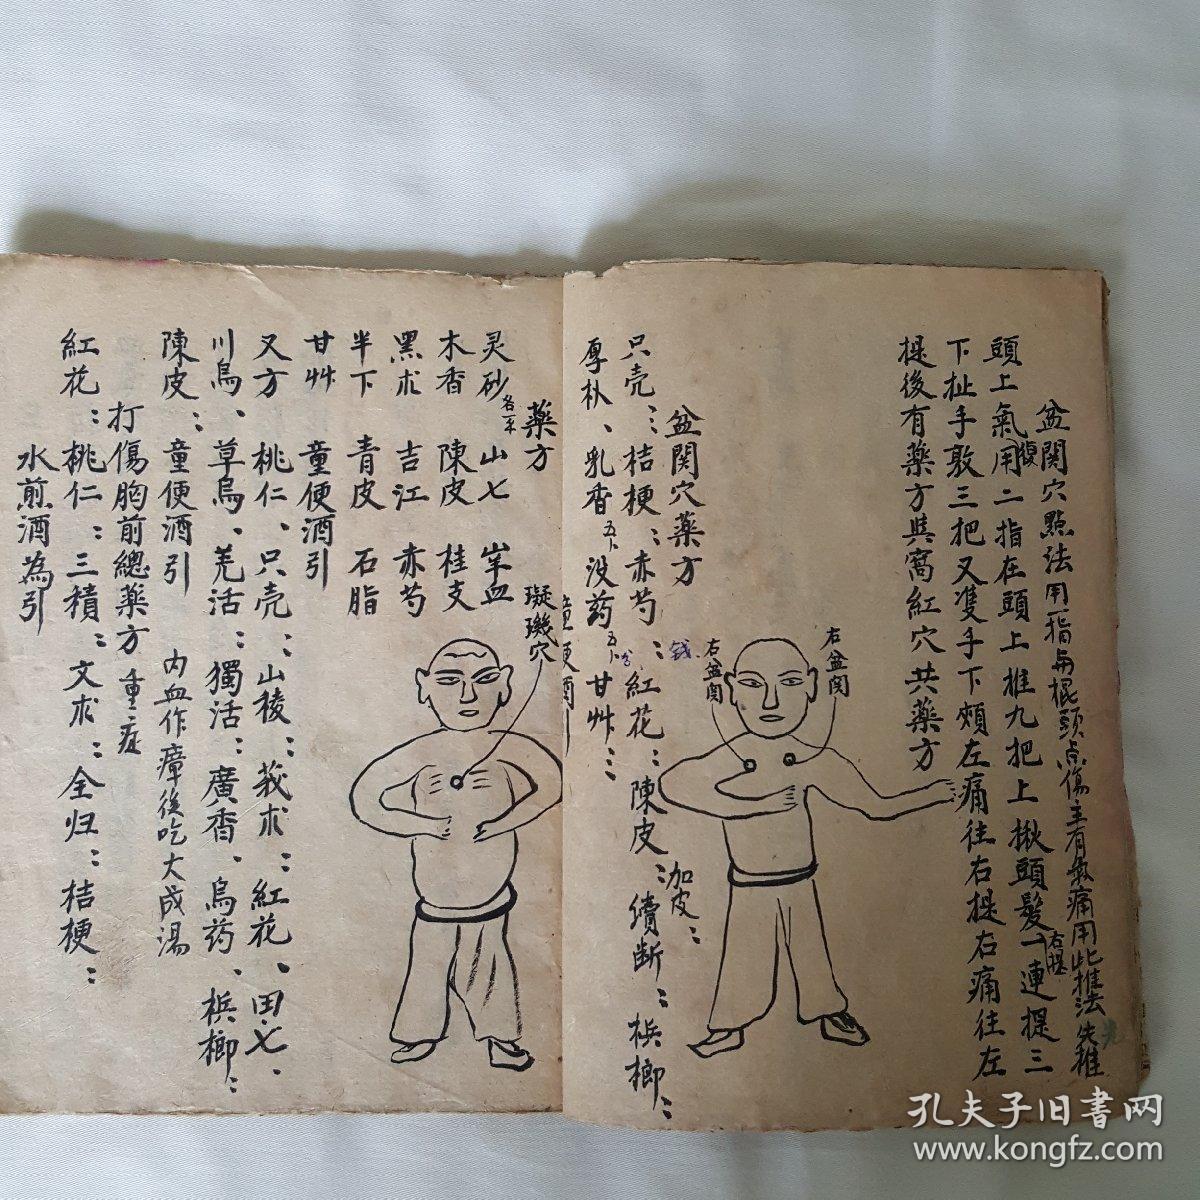 盆関穴點法用一指与棍頭点傷主有氣痛用此推法先推
頭上氣用二指在頭上推九把上揪頭髮一連提三
腹
右提
下扯手敦三把又隻手下頰左痛往右提右痛往左
提後有藥方與窩紅穴共藥方
右盆関
右盆関
盆関穴藥方
只壳：桔梗：赤芍：紅花：陳皮：續斷：梹榔：
钱
加皮：
厚朴、乳香五卜没药五卜甘艸：
童便酒引
藥方
璇璣穴
灵砂各一 山七 羊血
木香 陳皮 桂支
黑朮 吉江 赤芍
半下 青皮 石脂
甘艸 童便酒引
又方 桃仁、只壳：山棱：莪朮：紅花、田七、
川烏、草烏、羌活：獨活：廣香、烏药、梹榔：
陳皮：童便酒引 内血作瘴後吃大成湯
打傷胸前總藥方 重症
紅花：桃仁：三積：文朮：全归：桔梗：
水煎酒為引
孔夫子旧書网
www.kongfz.com